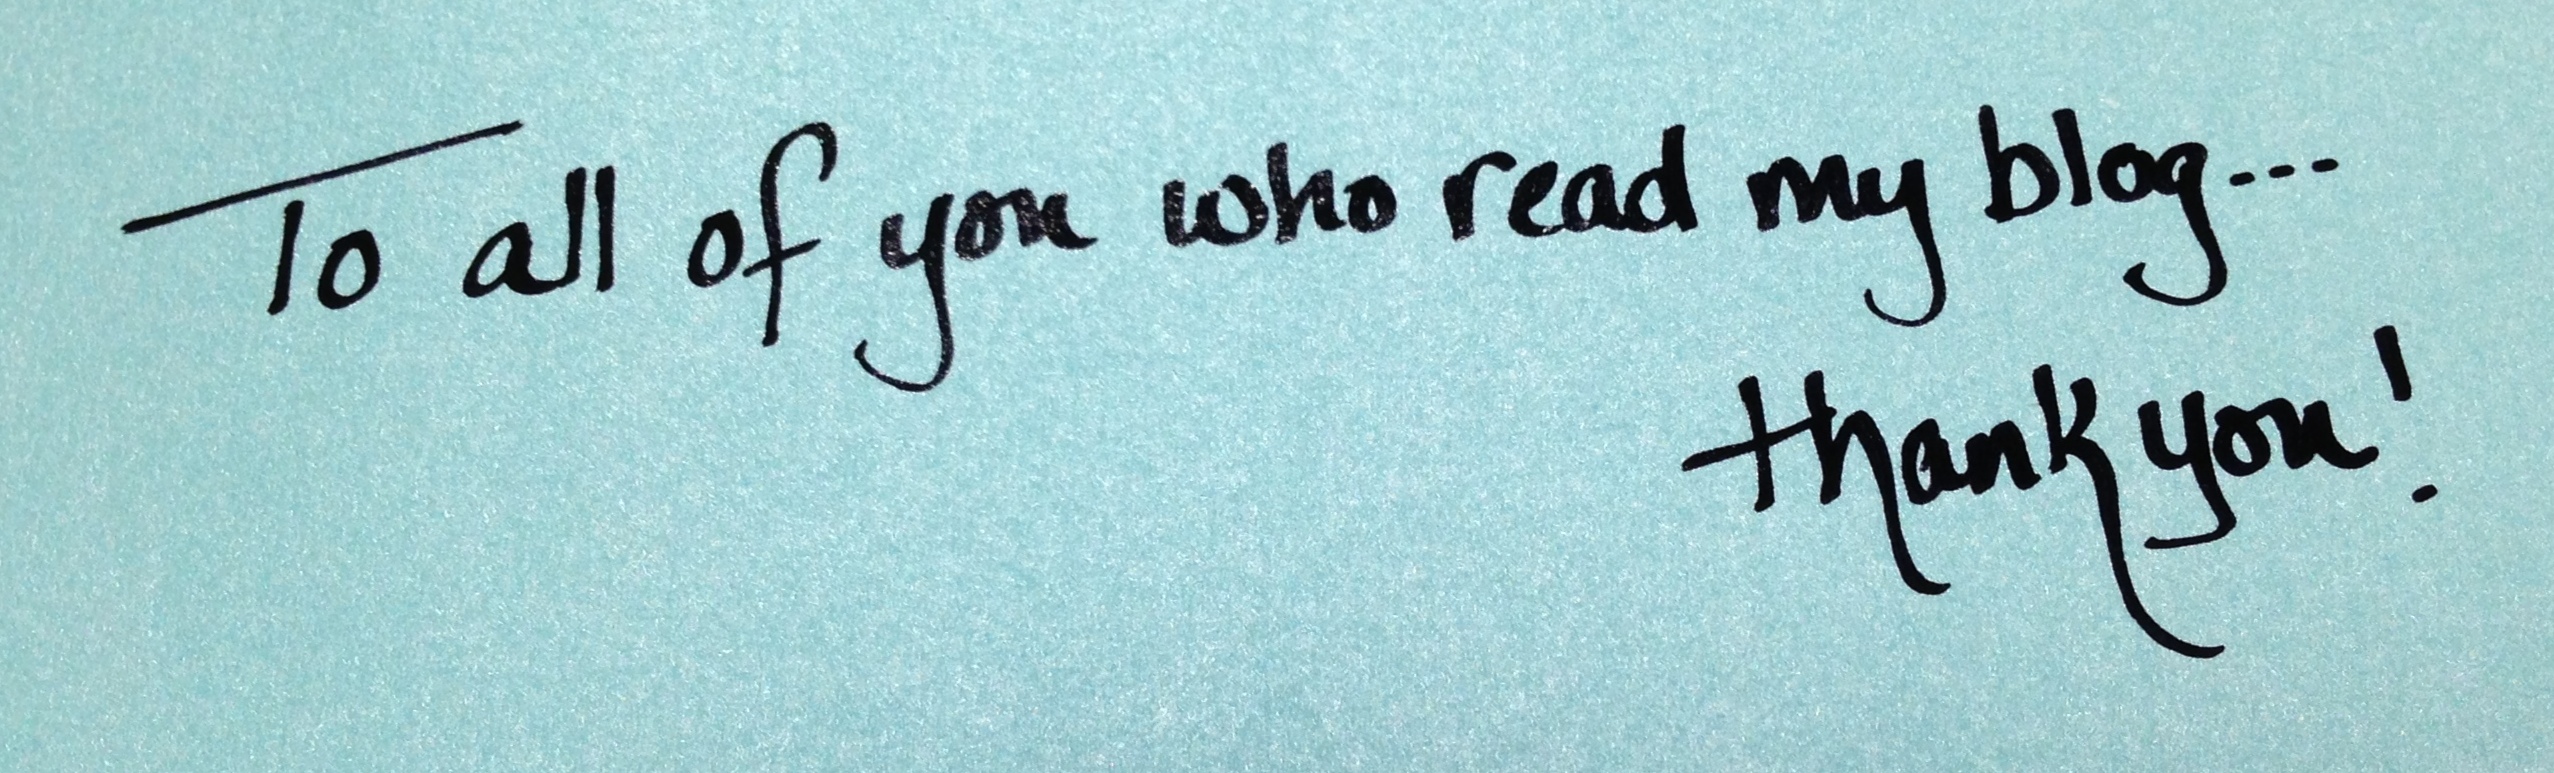 To all of you who read my blog...
thank you!